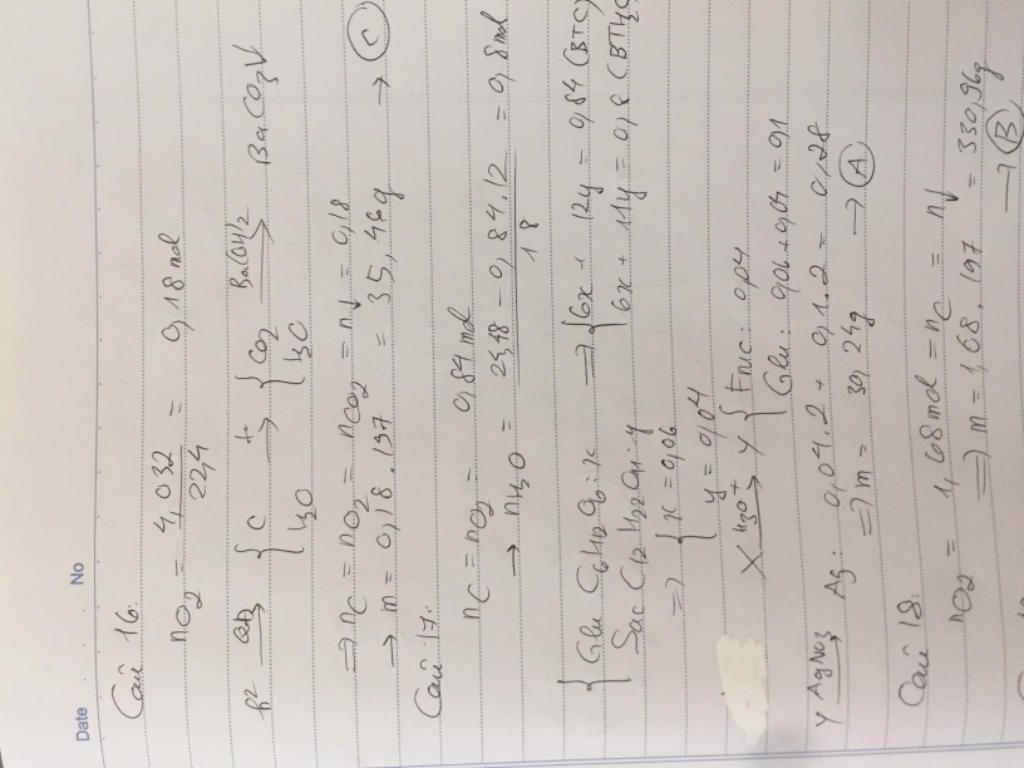 Date No
Câu 16:
nO2 = 4,032 / 22,4 = 0,18 mol
{ C H2O → { CO2 H2O Ba(OH)2 → BaCO3↓
⇒ nC = nO2 = nCO2 = n↓ = 0,18
→ m = 0,18 . 197 = 35,46g → C
Câu 17:
nC = nO2 = 0,84 mol
→ nH2O = 24,48 - 0,84.12 / 18 = 0,8 mol
{ Glu C6H12O6: x ⇒ { 6x + 12y = 0,84 (BTC)
Sac C12H22O11: y 6x + 11y = 0,8 (BTH2O
⇒ { x = 0,06
y = 0,04
X H3O+ → Y { Fruc: 0,04
Glu: 0,06+0,04 = 0,1
Y AgNO3 → Ag: 0,04.2 + 0,1.2 = 0,28
⇒ m = 30,24g → A
Câu 18:
nO2 = 1,68 mol = nC = n↓
⇒ m = 1,68 . 197 = 330,96g
→ B